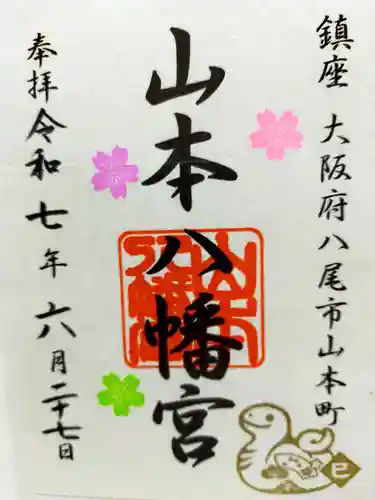 鎮座 大阪府八尾市山本町
山本八幡宮
奉拝 令和七年六八月二十七日
巳